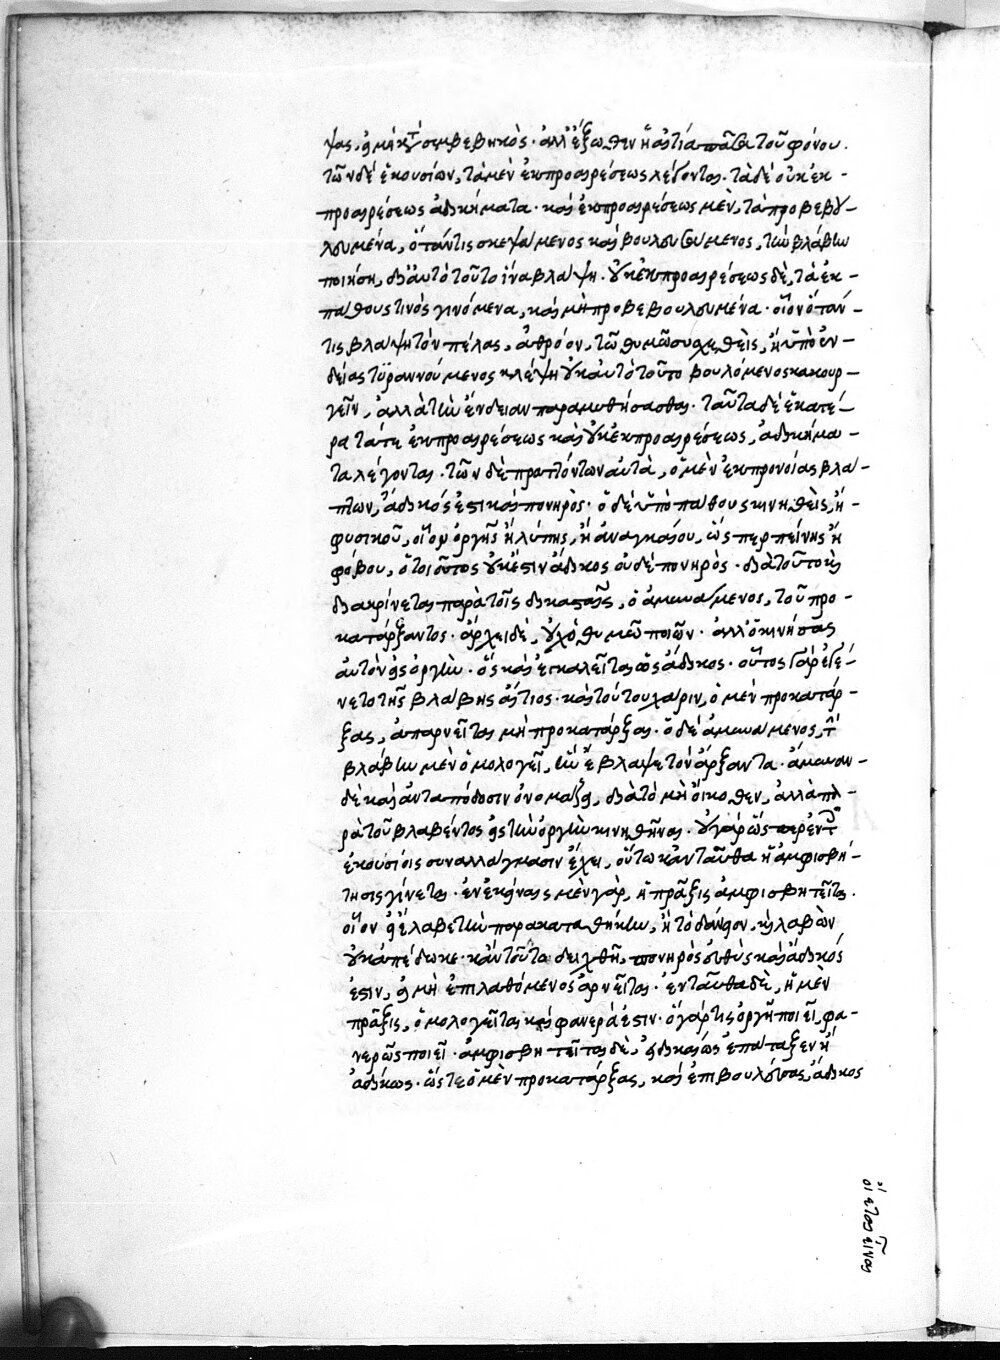 ψας, εἰ μὴ κατὰ συμβεβηκὸς· ἀλλ' ἔξωθεν ἡ αἰτία πᾶσα τοῦ φόνου.
τῶν δὲ ἑκουσίων, τὰ μὲν ἐκ προαιρέσεως λέγονται. τὰ δὲ οὐκ ἐκ -
προαιρέσεως ἀδικήματα· καὶ ἐκ προαιρέσεως μὲν, τὰ προβεβου-
λευμένα, ὅταν τις σκεψάμενος καὶ βουλευσάμενος, τὴν βλάβην
ποιήσῃ, διαυτὸ τοῦτο ἵνα βλάψῃ. οὐκ ἐκ προαιρέσεως δὲ, τὰ ἐκ -
πάθους τινὸς γινόμενα, καὶ μὴ προβεβουλευμένα· οἷον ὅταν -
τις βλάψῃ τὸν πέλας, ἀθρόον, τῶ θυμῶ συσχεθεὶς, ἢ ὑπὸ ἐν -
δείας τυραννούμενος κλέψῃ οὐκ αὐτὸ τοῦτο βουλόμενος κακουρ -
γεῖν, ἀλλὰ τὴν ἔνδειαν παραμυθήσασθαι. ταῦτα δὲ ἑκατέ -
ρα τά τε ἐκ προαιρέσεως καὶ οὐκ ἐκ προαιρέσεως, ἀδικήμα -
τα λέγονται. τῶν δὲ πραττόντων αὐτὰ, ὁ μὲν ἐκ προνοίας βλά -
πτων, ἄδικός ἐστι καὶ πονηρὸς· ὁ δὲ ὑπὸ πάθους κινηθεὶς, ἢ -
φυσικοῦ, οἷον ὀργῆς ἢ λύπης, ἢ ἀναγκαίου, ὥσπερ πείνης ἢ
φόβου, ὁ τοιοῦτος οὐκ ἔστιν ἄδικος οὐδὲ πονηρὸς· διὰ τοῦτο καὶ
διακρίνεται παρὰ τοῖς δικασταῖς, ὁ ἀμυνάμενος, τοῦ προ -
κατάρξαντος· ἄρχει δὲ, οὐχ ὁ θυμῶ ποιῶν· ἀλλ' ὁ κινήσας
αὐτὸν εἰς ὀργὴν· ὃς καὶ ἐγκαλεῖται ὡς ἄδικος· οὗτος γὰρ ἐγέ -
νετο τῆς βλάβης αἴτιος· καὶ τούτου χάριν, ὁ μὲν προκατάρ -
ξας, ἀπαρνεῖται μὴ προκατάρξαι· ὁ δὲ ἀμυνάμενος, τὴν
βλάβην μὲν ὁμολογεῖ, ἣν ἔβλαψε τὸν ἄρξαντα· ἄμυναν -
δὲ καὶ ἀνταπόδοσιν ὀνομάζει, διὰ τὸ μὴ οἴκοθεν, ἀλλὰ πα -
ρὰ τοῦ βλαβέντος εἰς τὴν ὀργὴν κινηθῆναι. οὐ γὰρ ὥσπερ ἐν τοῖς
ἑκουσίοις συναλλάγμασιν ἔχει, οὕτω κἀνταῦθα ἡ ἀμφισβή -
τησις γίνεται· ἐν ἐκείναις μὲν γὰρ, ἡ πρᾶξις ἀμφισβητεῖται.
οἷον εἰ ἔλαβε τὴν παρακαταθήκην, ἢ τὸ δάνειον, καὶ λαβὼν
οὐκ ἀπέδωκε· κἂν τοῦτο δειχθῆ, πονηρὸς εὐθὺς καὶ ἄδικός
ἐστιν, εἰ μὴ ἐπιλαθόμενος ἀρνεῖται· ἐνταῦθα δὲ, ἡ μὲν
πρᾶξις, ὁμολογεῖται καὶ φανερά ἐστιν· ὁ γάρ τις ὀργῆ ποιεῖ, φα -
νερῶς ποιεῖ· ἀμφισβητεῖται δὲ, εἰ δικαίως ἐπάταξεν ἢ
ἀδίκως· ὥστε ὁ μὲν προκατάρξας, καὶ ἐπιβουλεύσας, ἄδικος
οἴεται εἶναι